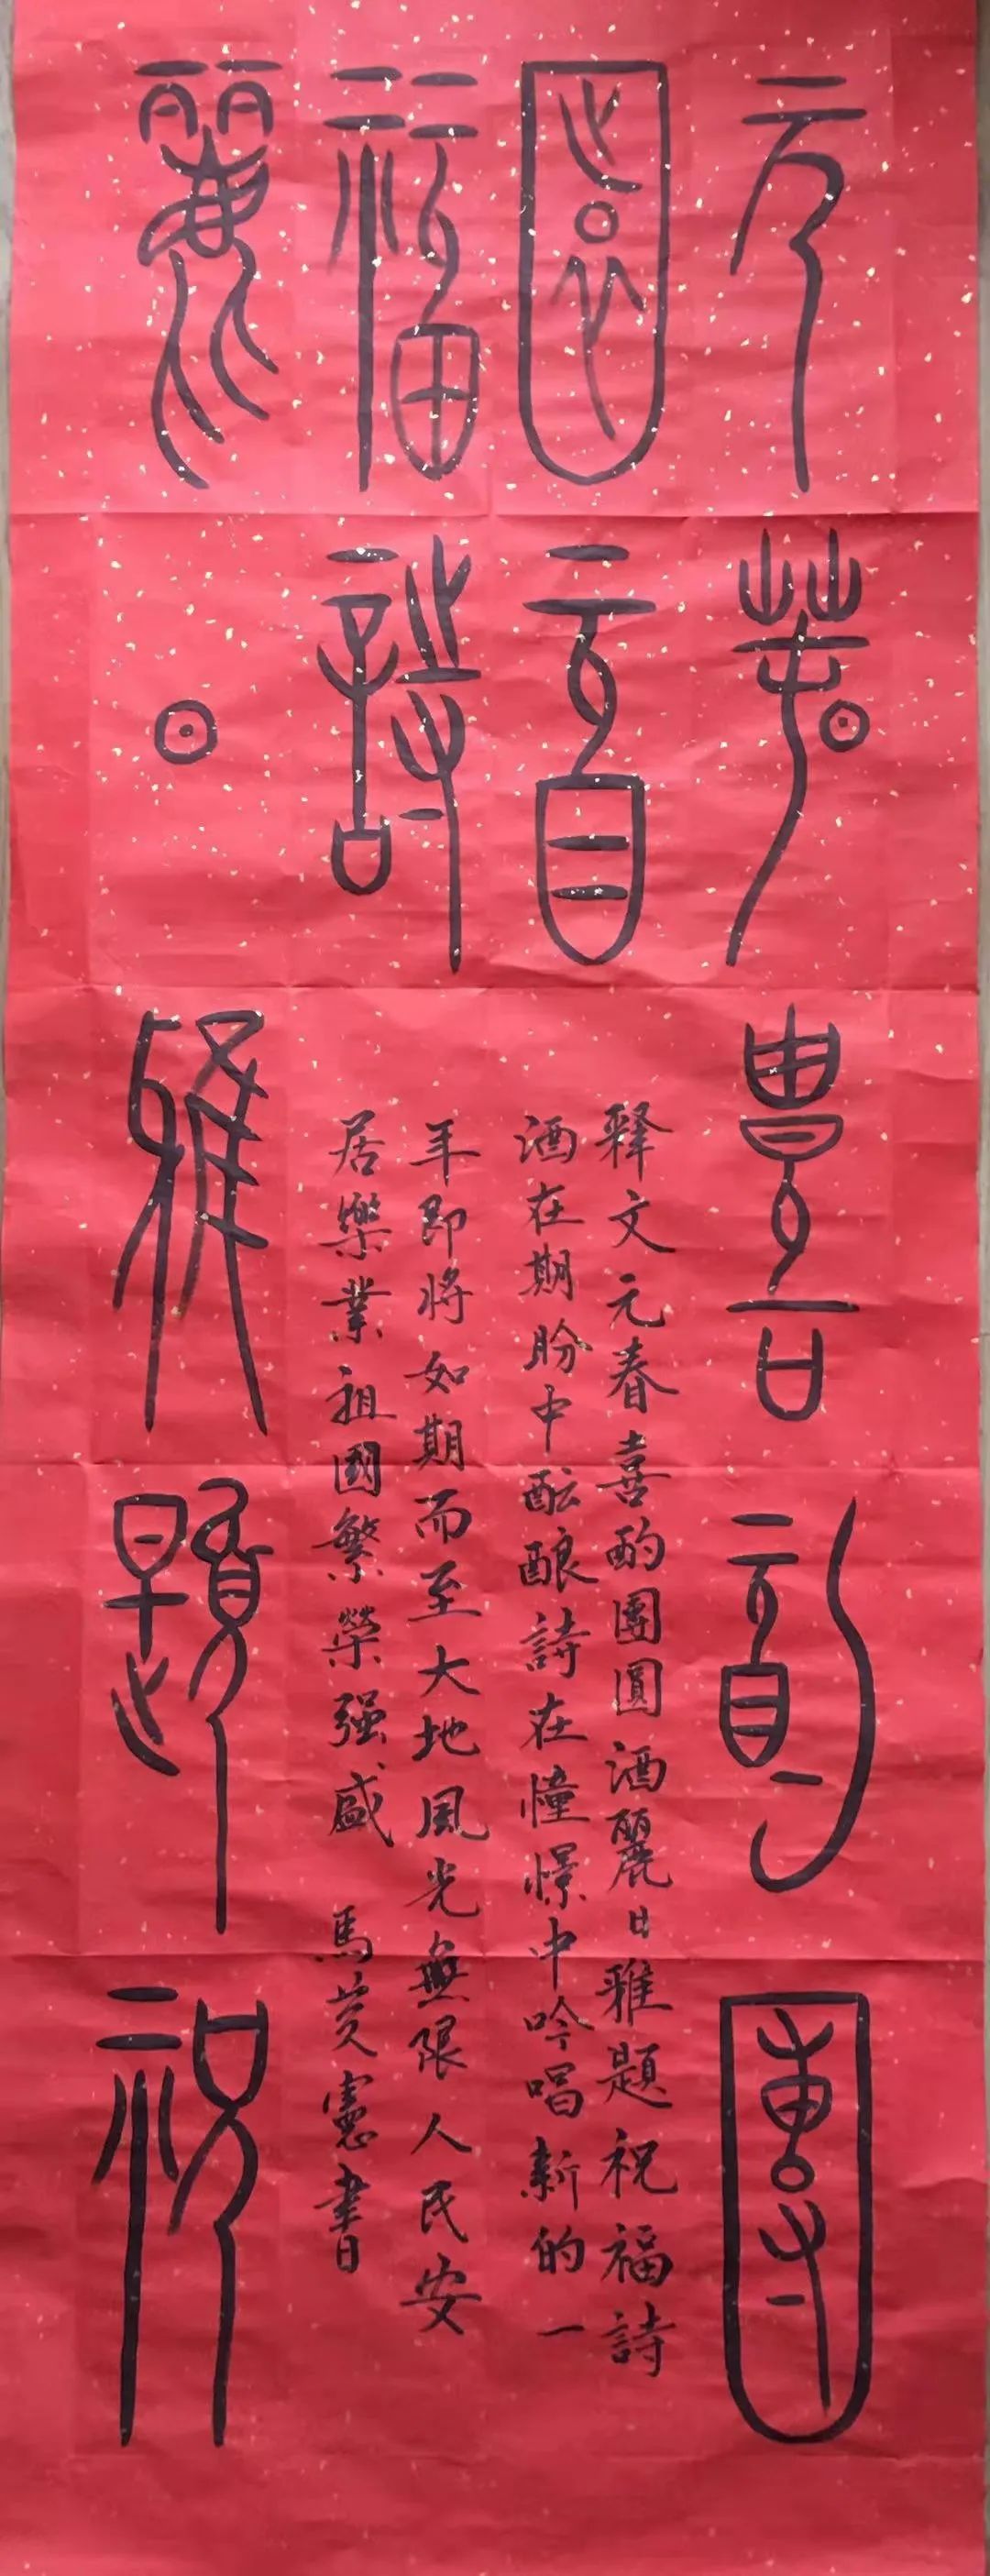 元春喜酌團
圓酒
麗日雅題祝
福詩
释文元春喜酌團圓酒麗日雅題祝福詩
酒在期盼中酝酿詩在憧憬中吟唱新的一
年即將如期而至大地風光無限人民安
居樂業祖國繁榮强盛 馬英憲書